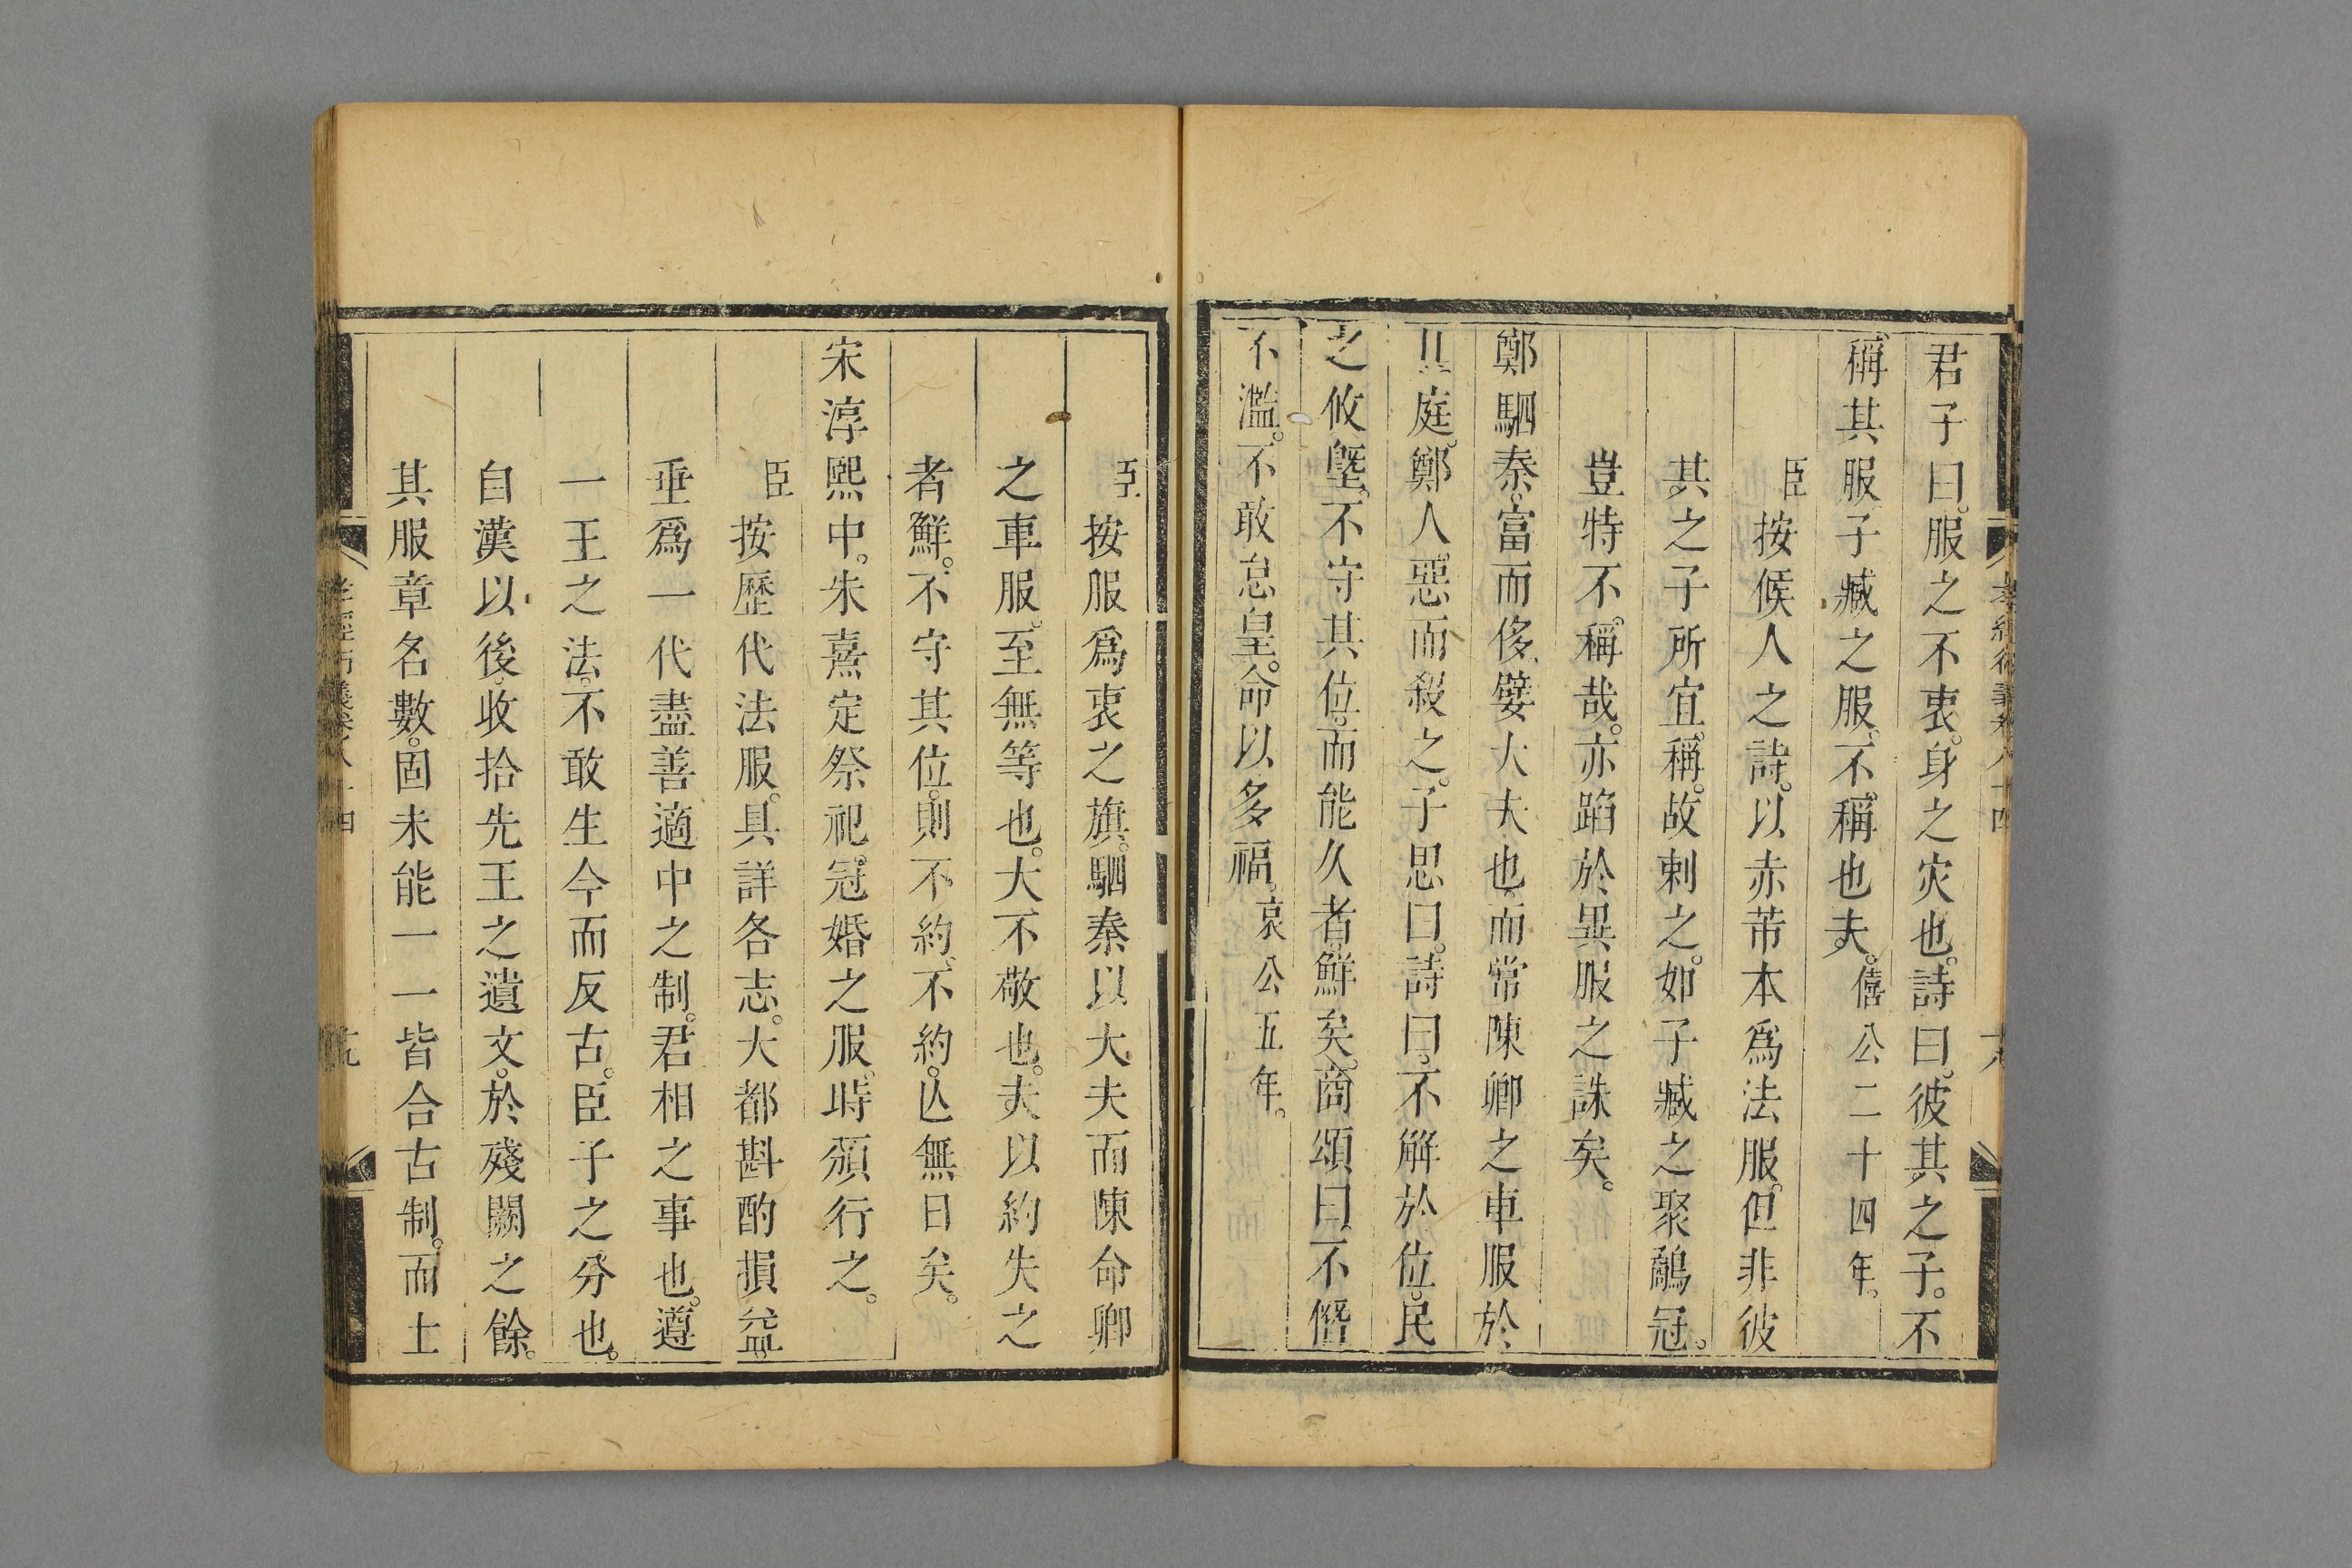 君子曰。服之不衷。身之灾也。詩曰。彼其之子。不
稱其服。子臧之服。不稱也夫。僖公二十四年。
臣按候人之詩。以赤芾本爲法服。但非彼
其之子所宜稱。故刺之。如子臧之聚鷸冠。
豈特不稱哉。亦蹈於異服之誅矣。
鄭駟秦。富而侈。嬖大夫也。而常陳卿之車服於
其庭。鄭人惡而殺之。子思曰。詩曰。不解於位。民
之攸墍。不守其位。而能久者鮮矣。商頌曰。不僭
不濫。不敢怠皇。命以多福。哀公五年。
臣按服爲衷之旗。駟秦以大夫而陳命卿
之車服。至無等也。大不敬也。夫以約失之
者鮮。不守其位。則不約。不約。亾無日矣。
宋淳熙中。朱熹定祭祀。冠婚之服。時頒行之。
臣按歷代法服。具詳各志。大都斟酌損益。
垂爲一代盡善適中之制。君相之事也。遵
一王之法。不敢生今而反古。臣子之分也。
自漢以後。收拾先王之遺文。於殘闕之餘。
其服章名數。固未能一一皆合古制。而士